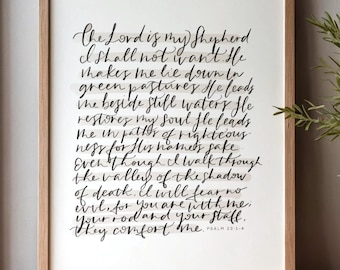 The Lord is my Shepherd
I shall not want. He
makes me lie down in
green pastures. He leads
me beside still waters. He
restores my soul. He leads
me in paths of righteous
ness for His names sake
Even though I walk through
the valley of the shadow
of death, I will fear no
evil, for you are with me,
your rod and your staff,
they comfort me. PSALM 23:1-4